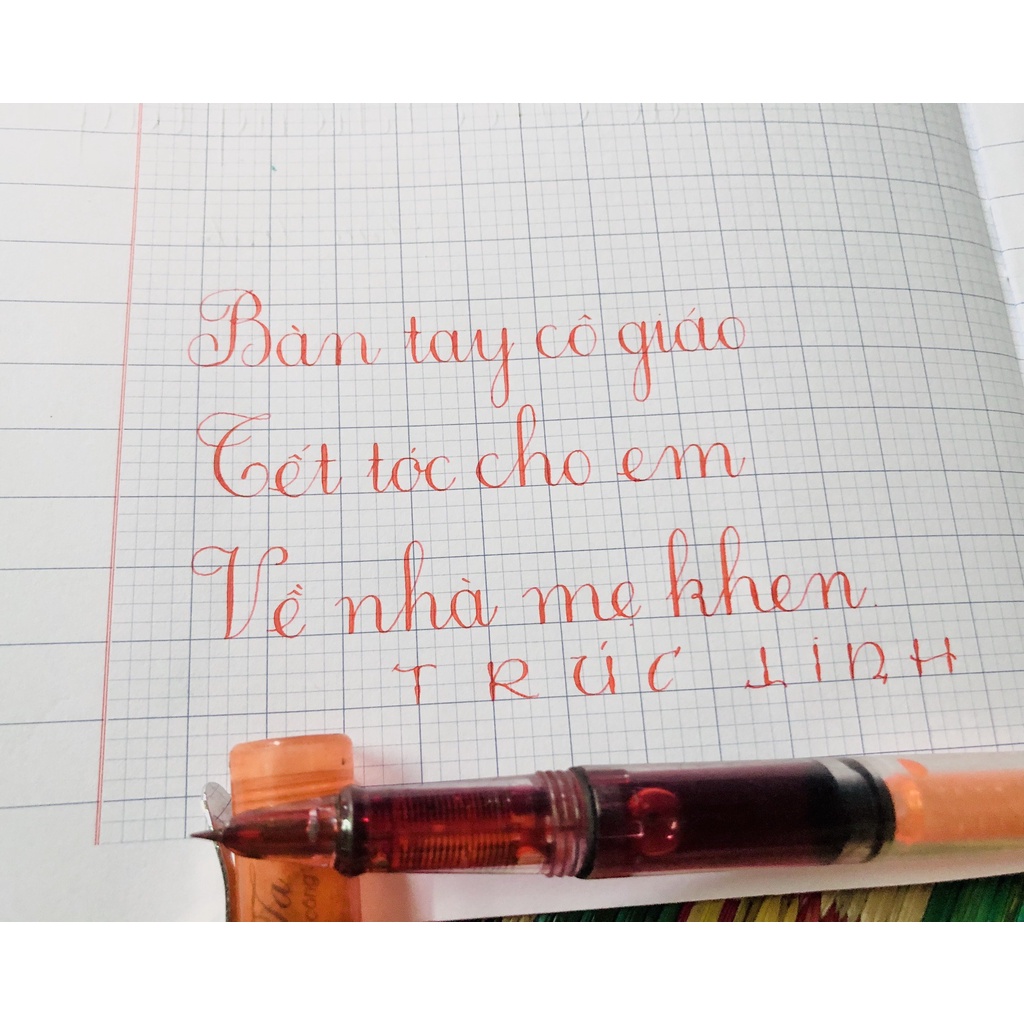 Bàn tay cô giáo
Tết tóc cho em
Về nhà mẹ khen
TRÚC LINH